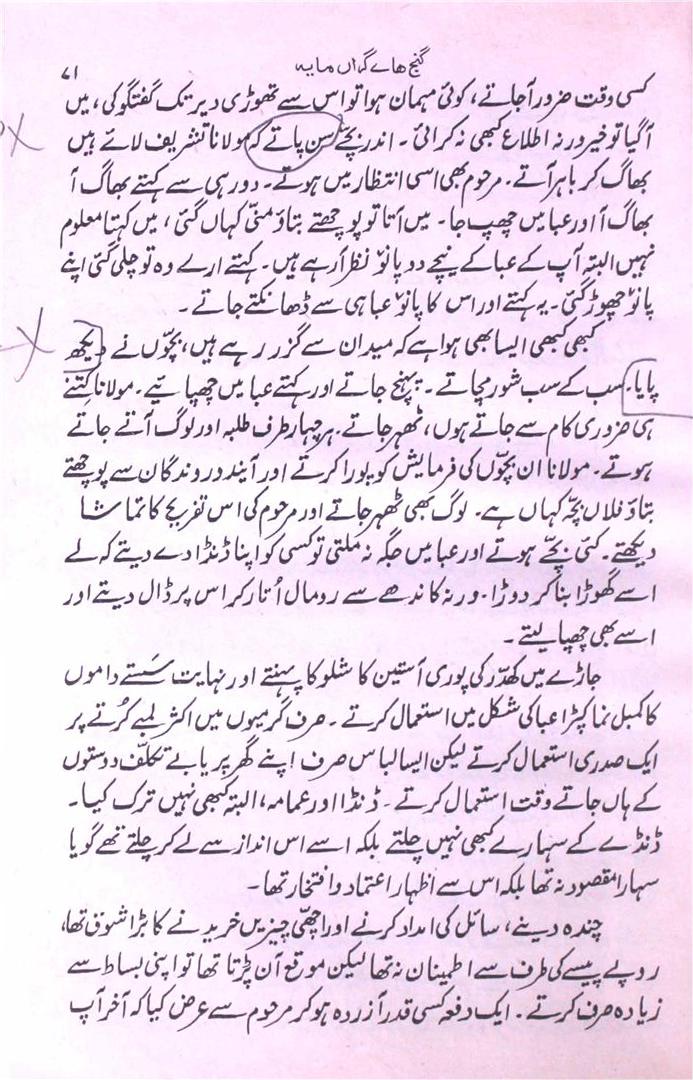 گنج ھاے گراں مایہ
۷۱
کسی وقت ضرور آجاتے، کوئی مہمان ہوا تو اس سے تھوڑی دیر تک گفتگو کی، میں
آگیا تو خیر ورنہ اطلاع کبھی نہ کرائی۔ اندر بچّے سُن پاتے کہ مولانا تشریف لائے ہیں
بھاگ کر باہر آتے۔ مرحوم بھی اسی انتظار میں ہوتے۔ دور ہی سے کہتے بھاگ آ
بھاگ آ اور عبا میں چھپ جا۔ میں آتا تو پوچھتے بتاؤ منّی کہاں گئی، میں کہتا معلوم
نہیں البتہ آپ کے عبا کے نیچے دو پانوْ نظر آرہے ہیں۔ کہتے ارے وہ تو چلی گئی اپنے
پانوْ چھوڑ گئی۔ یہ کہتے اور اس کا پانوْ عبا ہی سے ڈھانکتے جاتے۔
کبھی کبھی ایسا بھی ہوا ہے کہ میدان سے گزر رہے ہیں، بچّوں نے دیکھ
پایا۔ سب کے سب شور مچاتے۔ پہنچ جاتے اور کہتے عبا میں چھپائیے۔ مولانا کتنے
ہی ضروری کام سے جاتے ہوں، ٹھہر جاتے۔ ہر چہار طرف طلبہ اور لوگ آتے جاتے
ہوتے۔ مولانا ان بچّوں کی فرمایش کو پورا کرتے اور آیند و روندگان سے پوچھتے
بتاؤ فلاں بچّہ کہاں ہے۔ لوگ بھی ٹھہر جاتے اور مرحوم کی اس تفریح کا تماشا
دیکھتے۔ کئی بچّے ہوتے اور عبا میں جگہ نہ ملتی تو کسی کو اپنا ڈنڈا دے دیتے کہ لے
اسے گھوڑا بنا کر دوڑا۔ ورنہ کاندھے سے رومال اُتار کر اس پر ڈال دیتے اور
اسے بھی چھپا لیتے۔
جاڑے میں کھدّر کی پوری آستین کا شلوکا پہنتے اور نہایت سَستے داموں
کا کمبل نما کپڑا عبا کی شکل میں استعمال کرتے۔ صرف گرمیوں میں اکثر لمبے کُرتے پر
ایک صدری استعمال کرتے لیکن ایسا لباس صرف اپنے گھر پر یا بے تکلّف دوستوں
کے ہاں جاتے وقت استعمال کرتے۔ ڈنڈا اور عمامہ، البتہ کبھی نہیں ترک کیا۔
ڈنڈے کے سہارے کبھی نہیں چلتے بلکہ اسے اس انداز سے لے کر چلتے تھے گویا
سہارا مقصود نہ تھا بلکہ اس سے اظہار اعتماد و افتخار تھا۔
چندہ دینے، سائل کی امداد کرنے اور اچھّی چیزیں خریدنے کا بڑا شوق تھا،
روپے پیسے کی طرف سے اطمینان نہ تھا لیکن موقع آن پڑتا تھا تو اپنی بساط سے
زیادہ صرف کرتے۔ ایک دفعہ کسی قدر آزردہ ہو کر مرحوم سے عرض کیا کہ آخر آپ